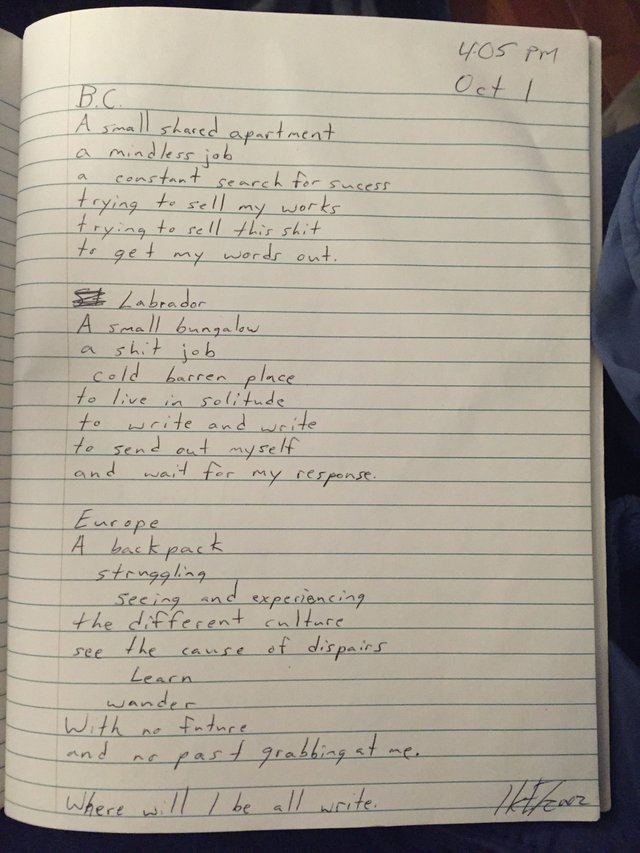 4:05 PM
Oct 1
B.C.
A small shared apartment
a mindless job
a constant search for sucess
trying to sell my works
trying to sell this shit
to get my words out.
Labrador
A small bungalow
a shit job
cold barren place
to live in solitude
to write and write
to send out myself
and wait for my response.
Europe
A backpack
struggling
seeing and experiencing
the different culture
see the cause of dispairs
Learn
wander
With no future
and no past grabbing at me.
Where will I be all write.